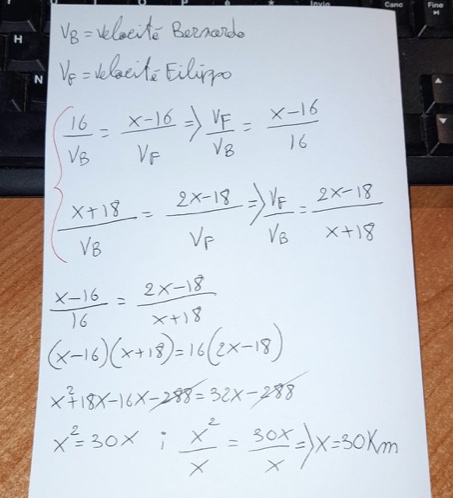 H
N
Invio
Canc
Fine
V_B = velocité Bernardo
V_F = velocité Filippo
16/V_B = x-16/V_F => V_F/V_B = x-16/16
x+18/V_B = 2x-18/V_F => V_F/V_B = 2x-18/x+18
x-16/16 = 2x-18/x+18
(x-16)(x+18)=16(2x-18)
x²+18x-16x-288=32x-288
x²=30x ; x²/x = 30x/x => x=30Km